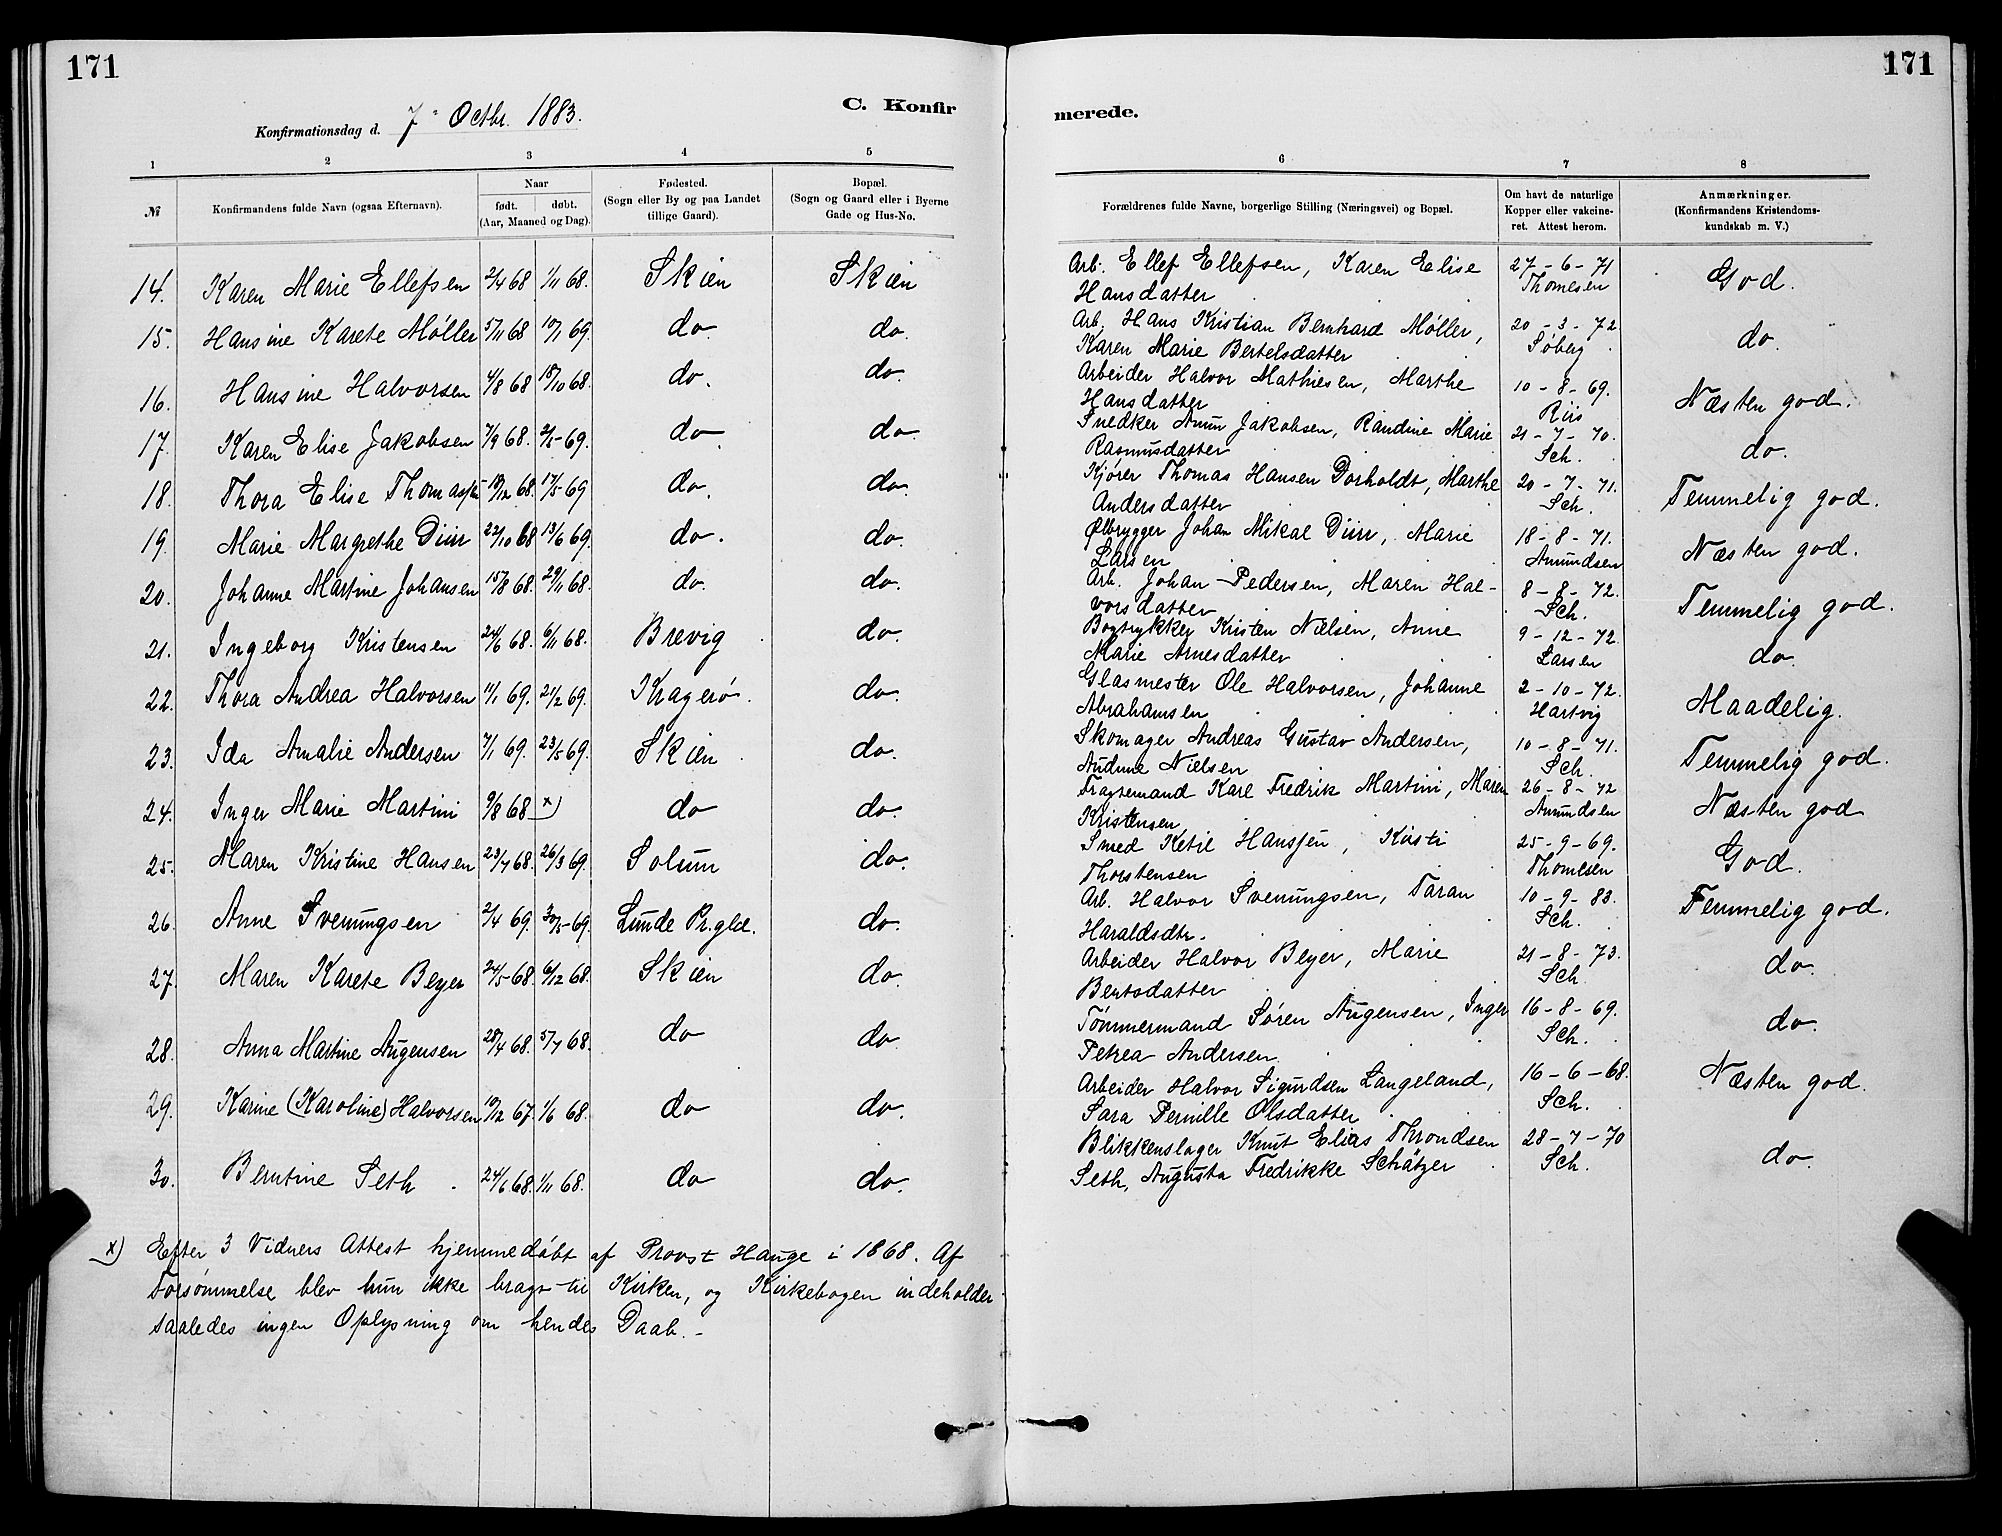 171
171
C. Konfir
merede.
Konfirmationsdag d. 7 Octbr. 1883.
1 2 3 4 5
6 7 8
№ Konfirmandens fulde Navn (ogsaa Efternavn). Naar født. døbt. (Aar, Maaned og Dag). Fødested. (Sogn eller By og paa Landet tillige Gaard). Bopæl. (Sogn og Gaard eller i Byerne Gade og Hus-No.
Forældrenes fulde Navne, borgerlige Stilling (Næringsvei) og Bopæl. Om havt de naturlige Kopper eller vakcineret. Attest herom. Anmærkninger. (Konfirmandens Kristendomskundskab m. V.)
14. Karen Marie Ellefsen 2/4 68 1/11 68. Skien Skien
Arb. Ellef Ellefsen, Karen Elise 27-6-71 God.
Hansdatter Thomesen
15. Hansine Karete Møller 5/11 68 10/1 69. do. do.
Arb. Hans Kristian Bernhard Møller, 20-3-72 do.
Karen Marie Bertelsdatter Søberg
16. Hansine Halvorsen 4/8 68 18/10 68. do. do.
Arbeider Halvor Mathiesen, Marthe 10-8-69. Næsten god.
Hansdatter Riis
17. Karen Elise Jakobsen 7/9 68. 2/5-69. do do.
Snedker Amun Jakobsen, Randine Marie 21-7-70. do.
Rasmusdatter Sch.
18. Thora Elise Thomassen 18/12 68. 17/5-69 do. do.
Kjører Thomas Hansen Dorholdt, Marthe 20-7-71. Temmelig god.
Andersdatter Sch.
19. Marie Margrethe Diin 22/10 68 13/6 69. do. do.
Ølbrygger Johan Mikal Diin, Marie 18-8-71. Næsten god.
Larsen Amundsen
20. Johanne Martine Johansen 15/8 68. 29/11 68. do. do.
Arb. Johan Pedersen, Maren Hal- 8-8-72. Temmelig god.
vorsdatter Sch.
21. Ingeborg Kristensen 24/6 68. 6/11 68. Brevig do.
Bogtrykker Kristen Nielsen, Anne 9-12-72 do.
Marie Arnesdatter Larsen
22. Thora Andrea Halvorsen 11/1 69. 21/2 69. Kragerø. do.
Glasmester Ole Halvorsen, Johanne 2-10-72. Maadelig.
Abrahamsen Hartvig
23. Ida Amalie Andersen 7/1 69. 23/5 69. Skien do.
Skomager Andreas Gustav Andersen, 10-8-71. Temmelig god.
Nielsen Sch.
24. Inger Marie Martini 9/8 68 x) do do.
Fragtemand Karl Fredrik Martini, Maren 26-8-72 Næsten god
Kristensen Amundsen
25. Maren Kristine Hansen 23/7 68. 26/3 69. Solum do.
Smed Ketil Hanssen, Kirsti 25-9-69. God.
Thorstensen Thomesen
26. Anne Svenungsen 2/4 69. 30/5-69. Lunde Pr.gld. do.
Arb. Halvor Svenungsen, Taran 10-9-83. Temmelig god.
Haraldsdtr. Sch.
27. Maren Karete Beyer 24/5-68. 6/12 68. Skien do.
Arbeider Halvor Beyer, Marie 21-8-73. do.
Bentsdatter Sch.
28. Anna Martine Augensen 28/4 68. 5/7 68. do do.
Tømmermand Søren Augensen, Inger 16-8-69. do.
Petrea Andersen. Sch.
29. Karine (Karoline) Halvorsen 19/12 67. 1/6 68. do do.
Arbeider Halvor Sigurdsen Langeland, 16-6-68. Næsten god.
Sara Pernille Olsdatter Sch.
30. Berntine Seth. 24/6 68. 1/11 68. do do.
Blikkenslager Knut Elias Throndsen 28-7-70 do.
Seth, Augusta Fredrikke Schätzer Sch.
x) Efter 3 Vidners Attest hjemmedøbt af Provst Hauge i 1868. Af
Forsømmelse blev hun ikke bragt til Kirken, og Kirkebogen indeholder
saaledes ingen Oplysning om hendes Daab.-